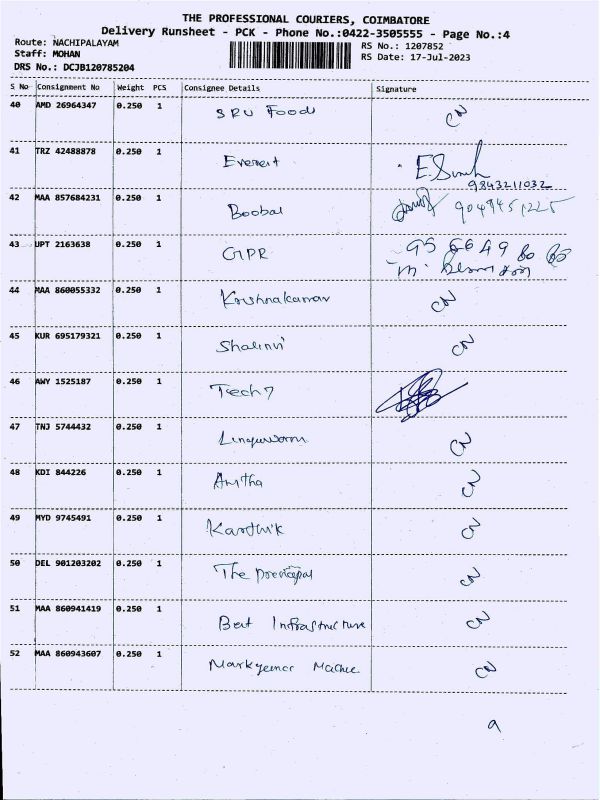 THE PROFESSIONAL COURIERS, COIMBATORE
Delivery Runsheet - PCK - Phone No.:0422-3505555 - Page No.:4
Route: NACHIPALAYAM
Staff: MOHAN
DRS No.: DCJB120785204
RS No.: 1207852
RS Date: 17-Jul-2023
S No Consignment No Weight PCS Consignee Details Signature
40 AMD 26964347 0.250 1 SRU Foods CN
41 TRZ 42488878 0.250 1 Everest
9843211032
42 MAA 857684231 0.250 1 Boobal 9049451225
43 UPT 2163638 0.250 1 GPR
44 MAA 860055332 0.250 1 Krishnakumar CN
45 KUR 695179321 0.250 1 Shalinvi CN
46 AWY 1525187 0.250 1 Tech 7
47 TNJ 5744432 0.250 1 CN
48 KDI 844226 0.250 1 Anitha CN
49 MYD 9745491 0.250 1 Karthik CN
50 DEL 901203202 0.250 1 The principal CN
51 MAA 860941419 0.250 1 Best Infrastructure CN
52 MAA 860943607 0.250 1 CN
9